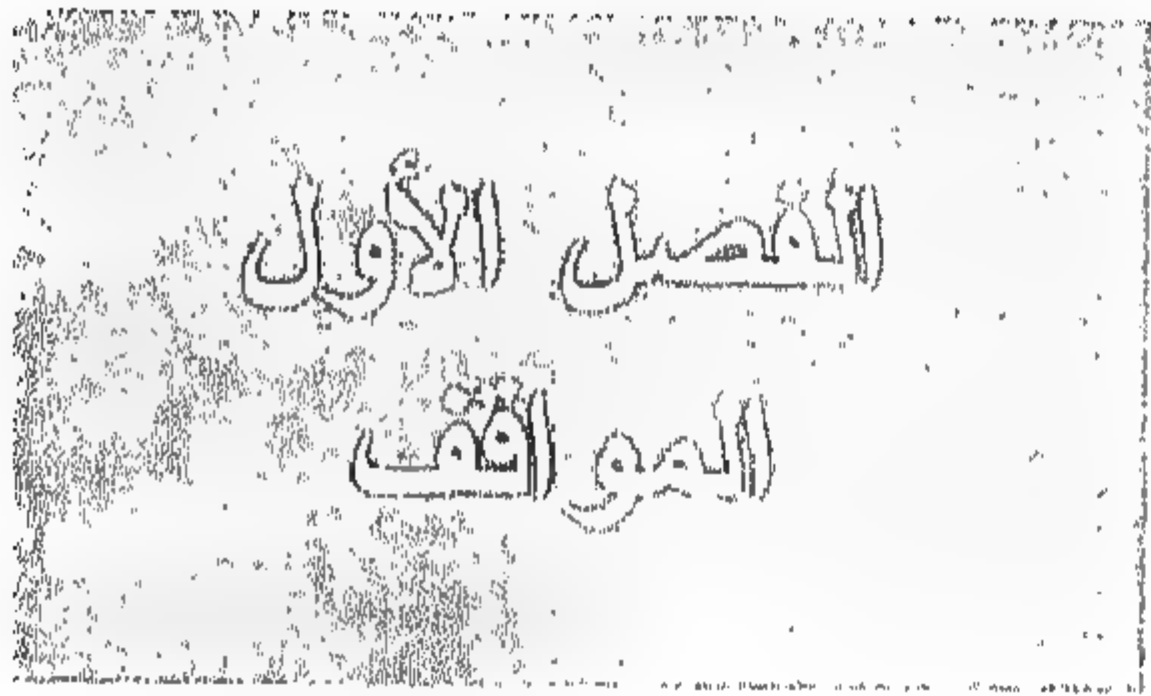 الفصل الأول
المواقف